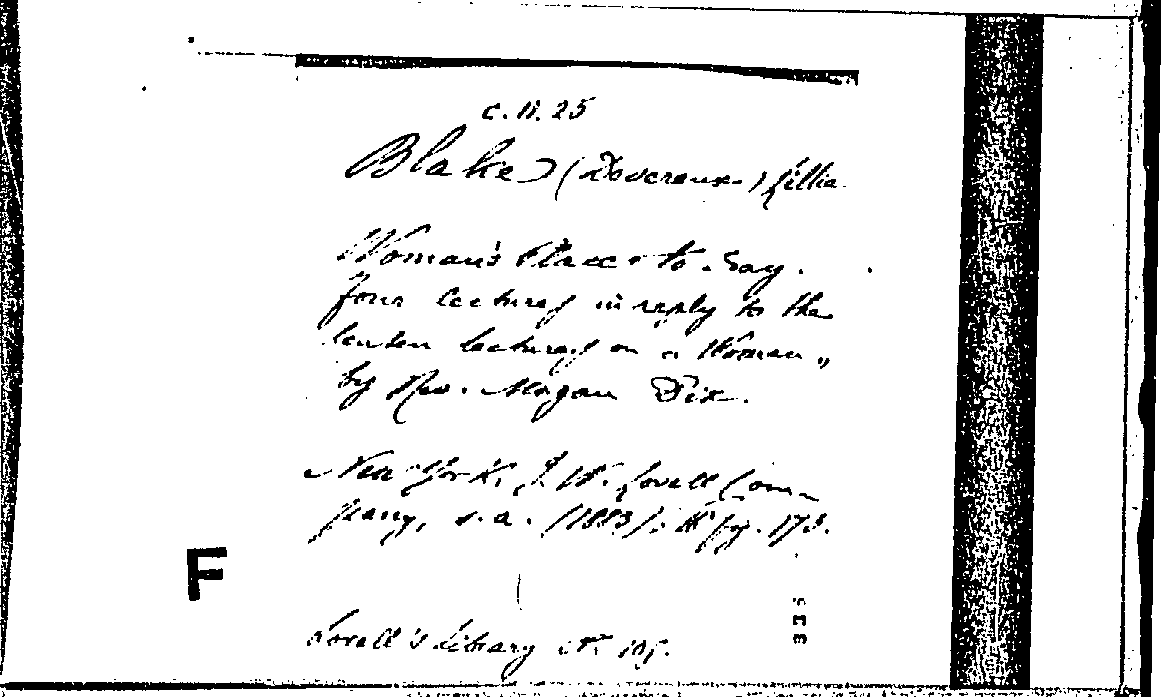 C. 11. 25
Blake (Devereux) Lillie
Woman's Place to-day.
four lectures in reply to the
lenten lectures on "Woman"
by Rev. Morgan Dix.
New York, J. W. Lovell Com-
pany, s.a. (1883). pg. 173.
F
Lovell's Library N° 105.